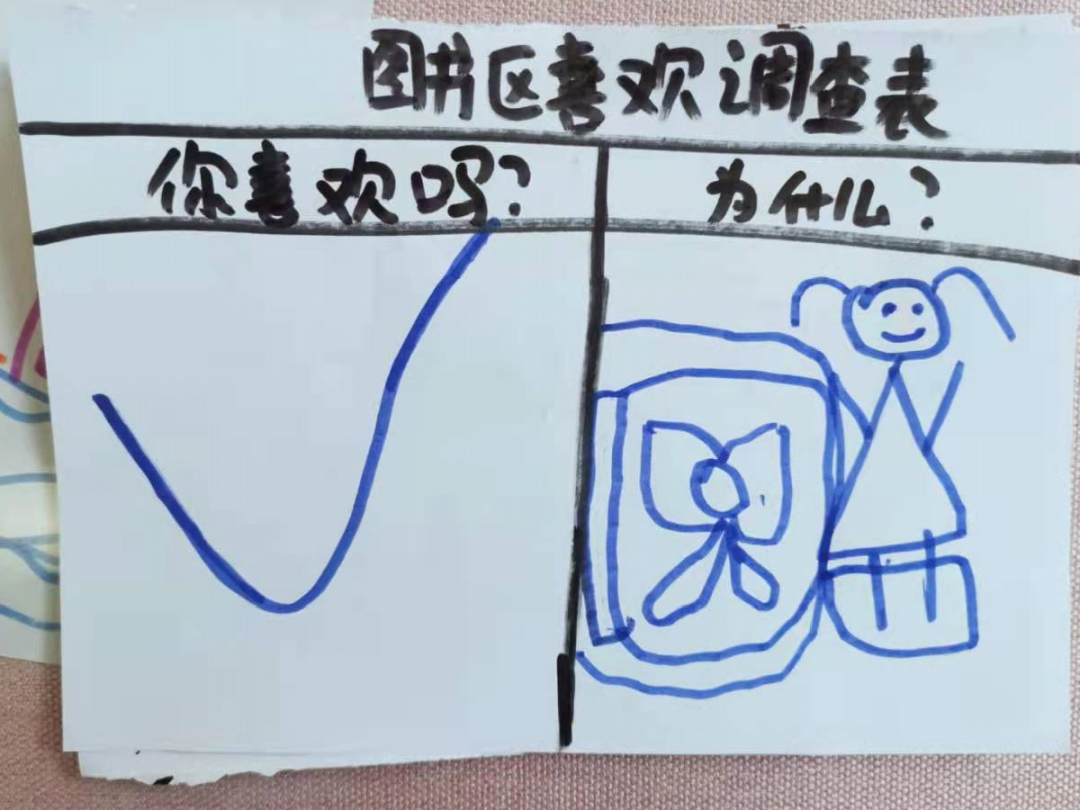 图书区喜欢调查表
你喜欢吗?
为什么?